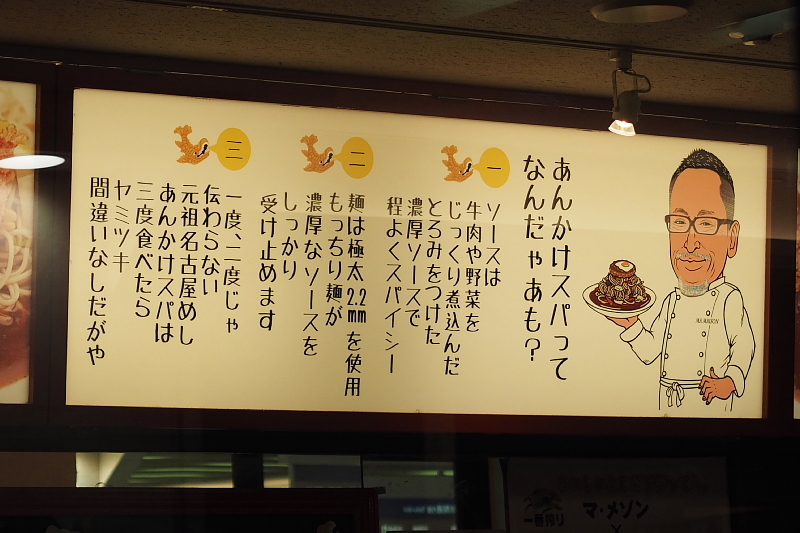 あんかけスパって
なんだゃあも?
一
ソースは
牛肉や野菜を
じっくり煮込んだ
とろみをつけた
濃厚ソースで
程よくスパイシー
二
麺は極太2.2mmを使用
もっちり麺が
濃厚なソースを
しっかり
受け止めます
三
一度、二度じゃ
伝わらない
元祖名古屋めし
あんかけスパは
三度食べたら
ヤミツキ
間違いなしだがや
一番搾り
マ・メゾン